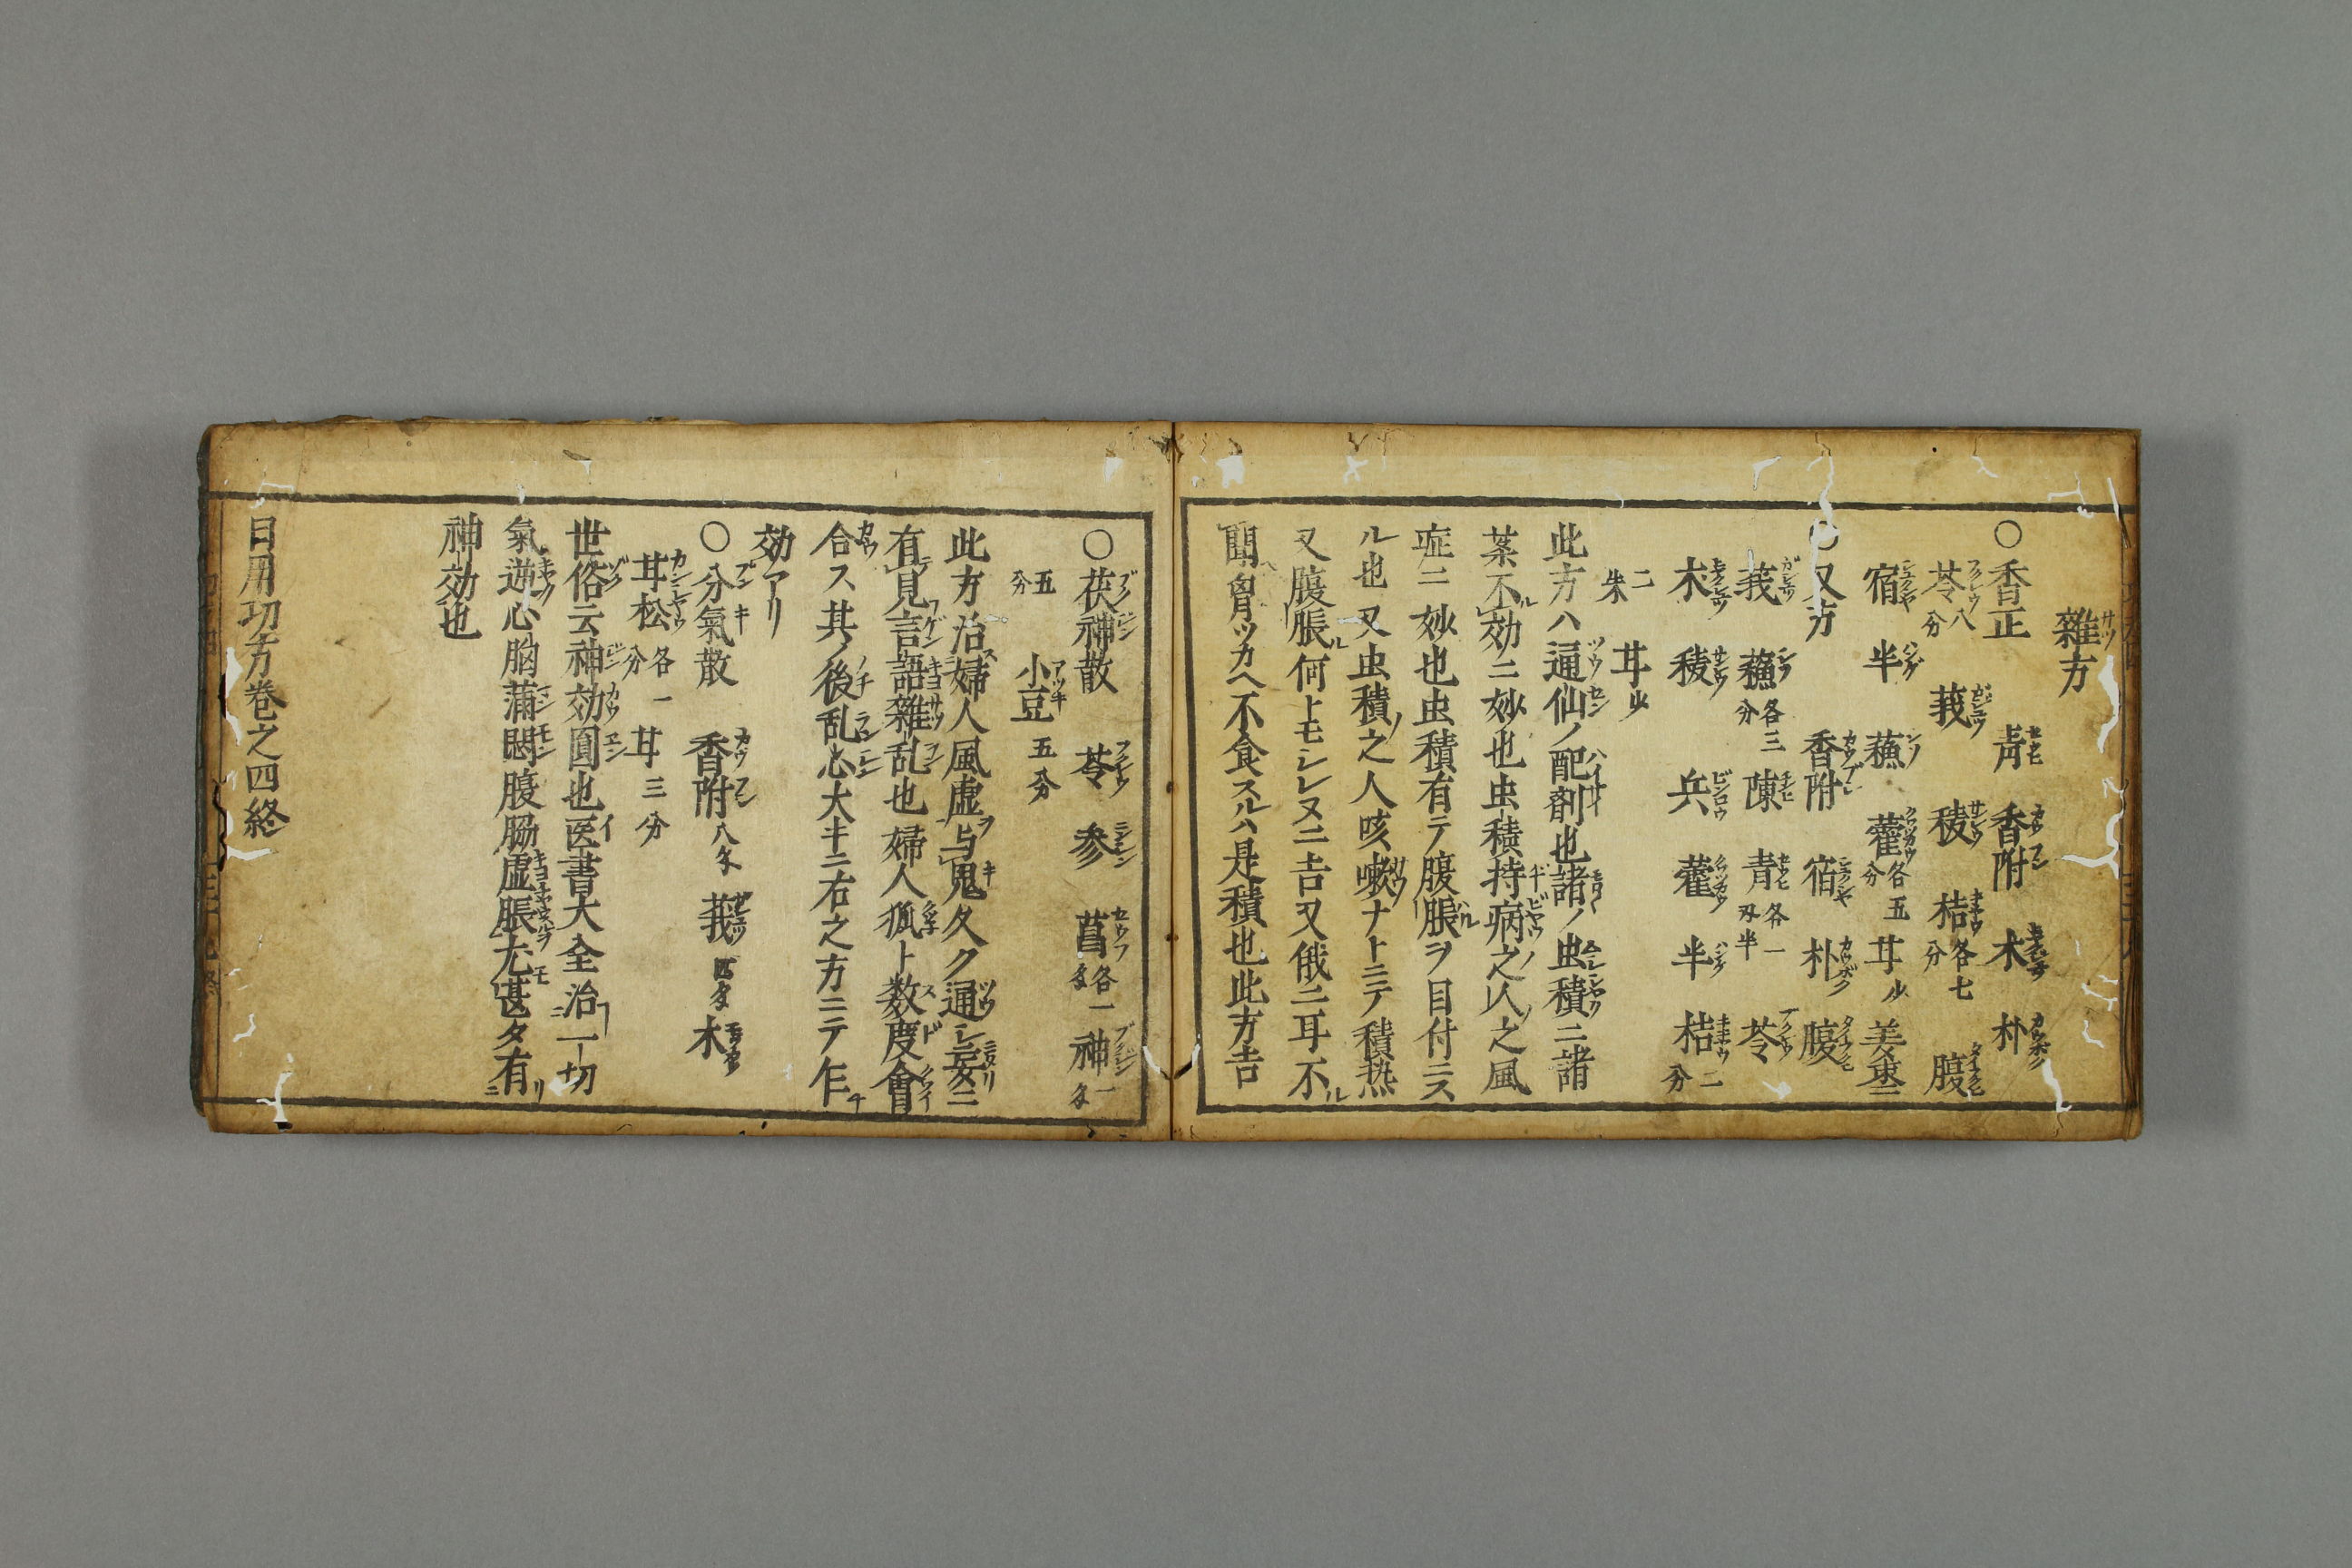 雜方
○香正 青 香附 木 朴
苓八分 莪 稜 桔各七分 腹
宿 半 蘓 藿各五分 甘少 姜棗
○又方 香附 宿 朴 腹
莪 蘓各三分 陳 青各一匁半 苓
木 稜 兵 藿 半 桔二分
二朱 甘少
此方ハ通仙ノ配剤也諸ノ虫積ニ諸
薬不効ニ妙也虫積持病之人之風
症ニ妙也虫積有テ腹脹ヲ目付ニス
ル也又虫積之人咳嗽ナトニテ積热
又腹脹何トモシレヌニ吉又俄ニ耳不
聞胷ツカヘ不食スルハ是積也此方吉
○茯神散 苓 参 菖各一匁 神一匁
五分 小豆五分
此方治婦人風虚与鬼久ク通シ妄ニ
有見言語雜乱也婦人狐ト数度會
合ス其後乱心大キニ右之方ニテ乍
効アリ
○分氣散 香附八匁 莪四匁 木
甘松各一分 甘三分
世俗云神効圓也医書大全治一切
氣逆心胸満悶腹肠虚脹尤甚タ有
神効也
日用功方巻之四終